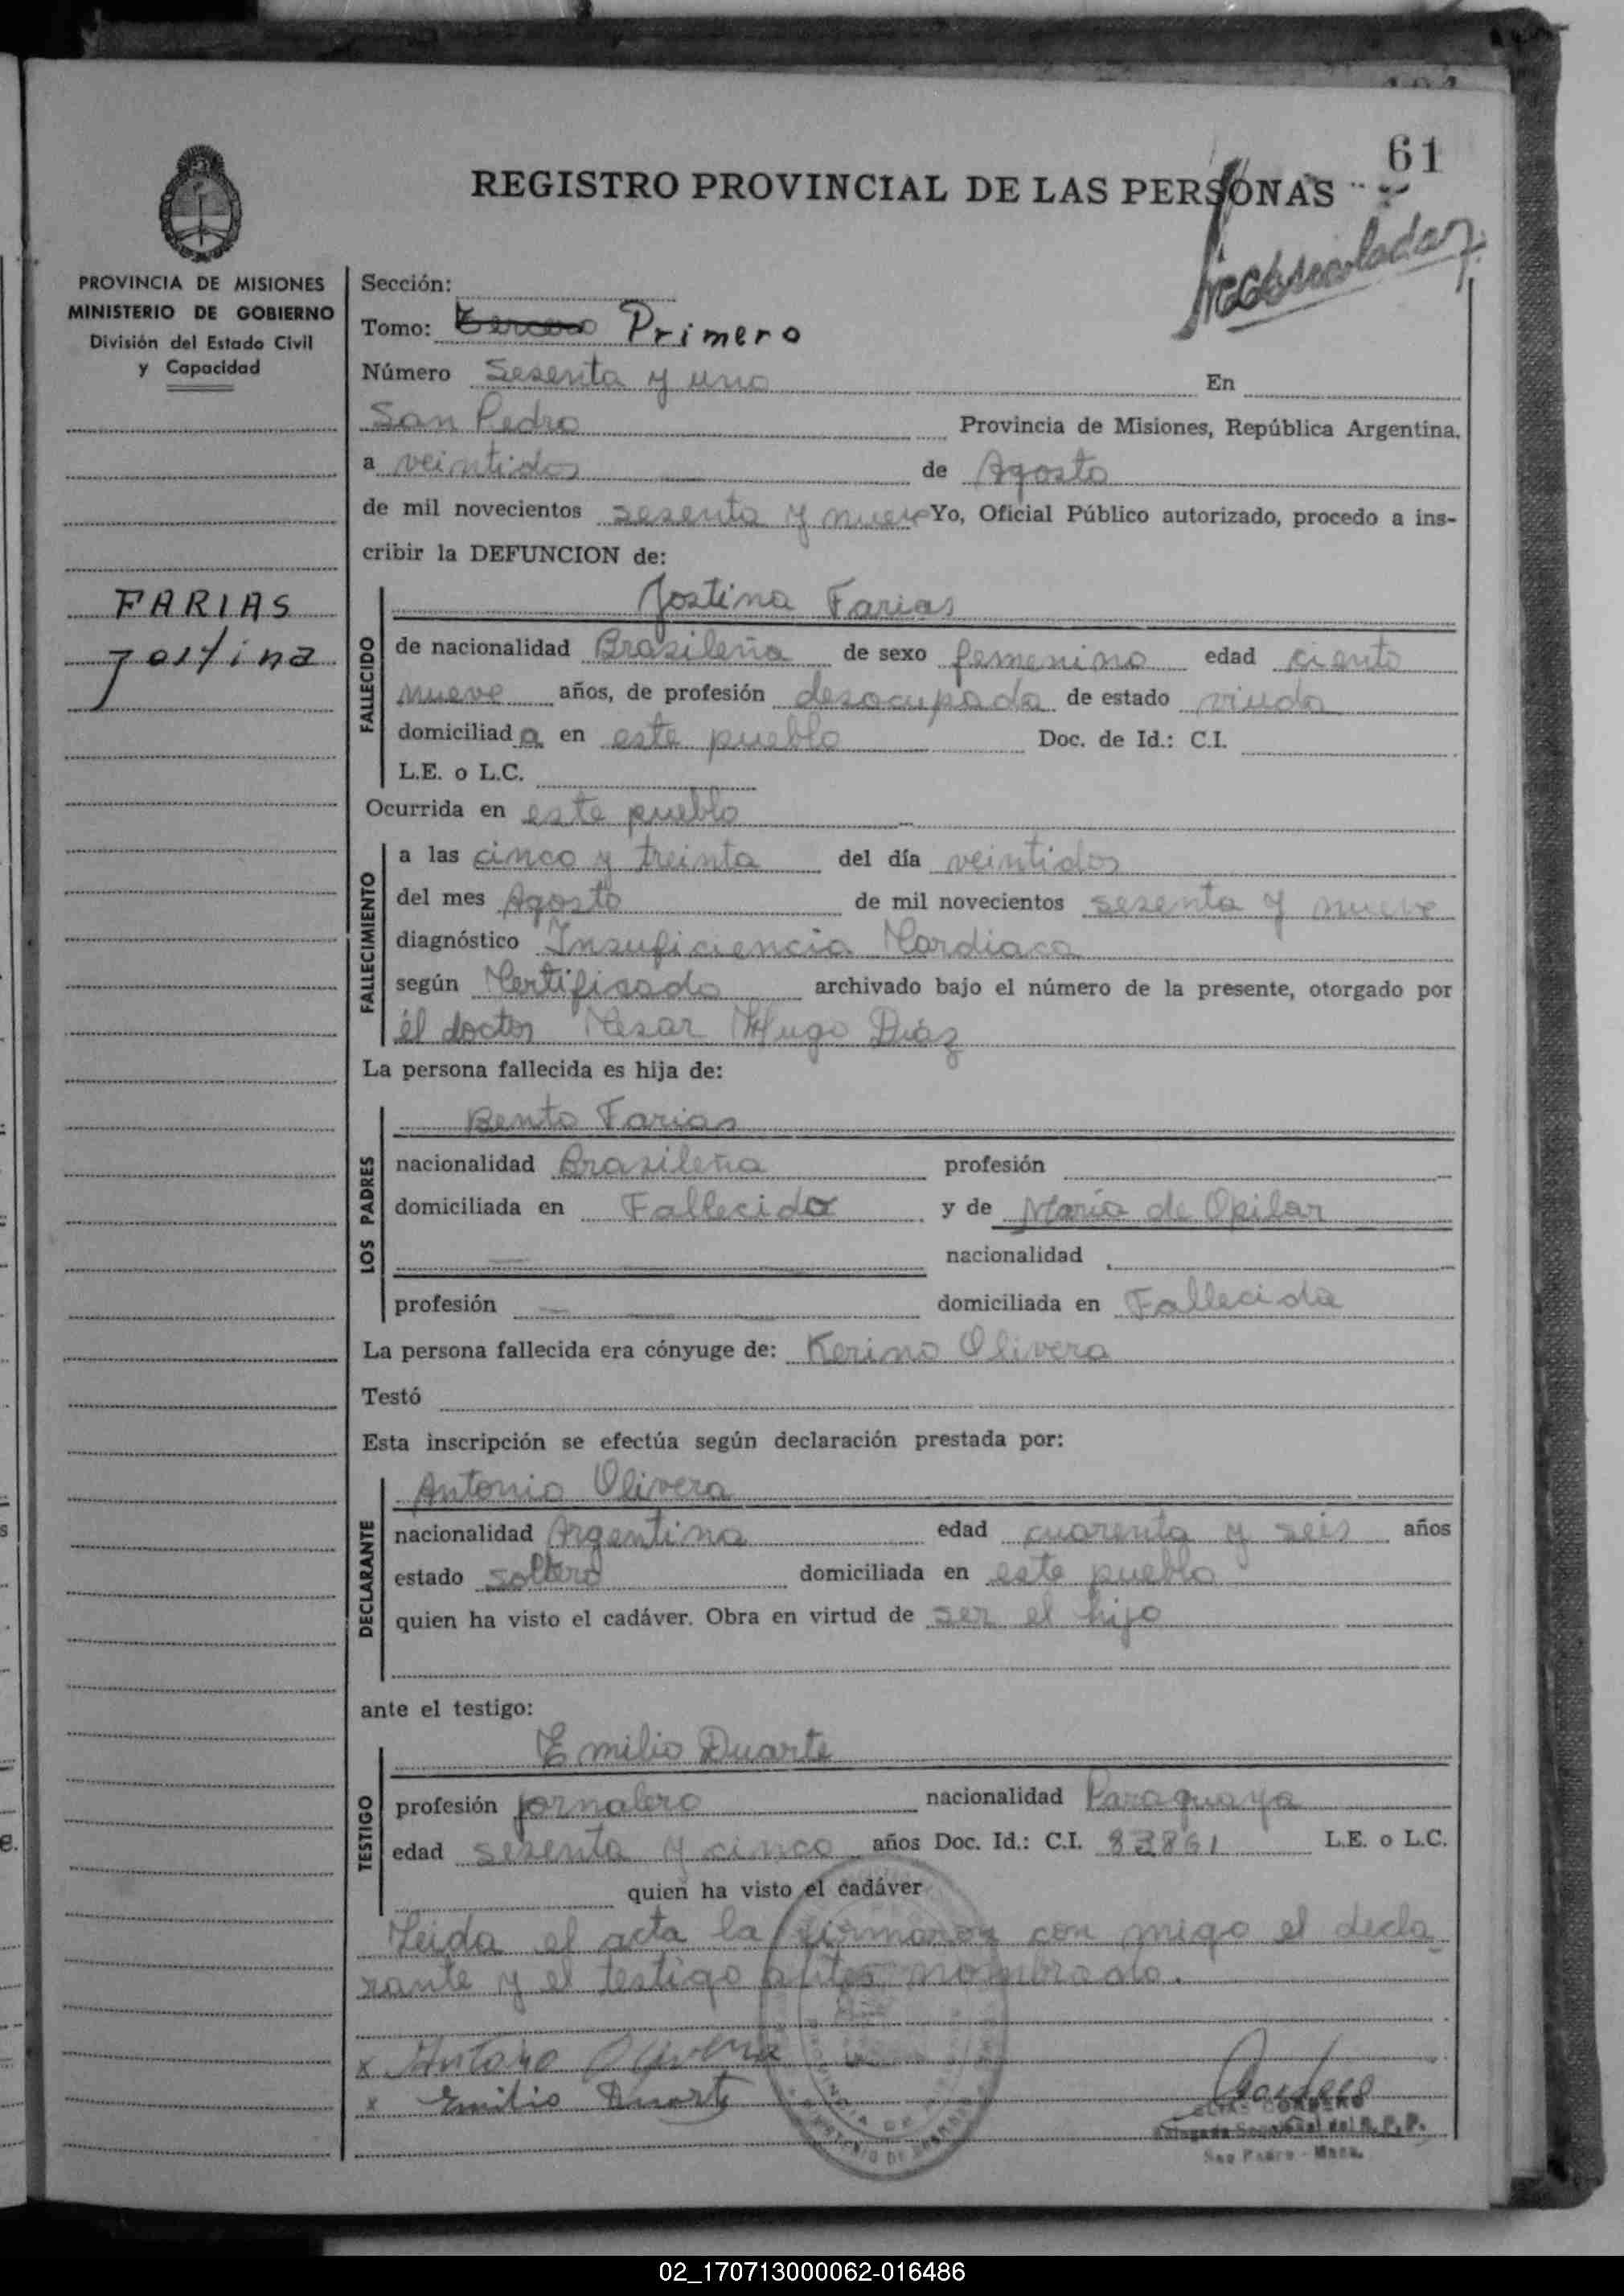 61
REGISTRO PROVINCIAL DE LAS PERSONAS
PROVINCIA DE MISIONES
MINISTERIO DE GOBIERNO
División del Estado Civil
y Capacidad
FARIAS
Jostina
Sección:
Tomo: Tercero Primero
Número Sesenta y uno En
San Pedro Provincia de Misiones, República Argentina,
a veintidos de Agosto
de mil novecientos sesenta y nueve Yo, Oficial Público autorizado, procedo a ins-
cribir la DEFUNCION de:
FALLECIDO
Jostina Farias
de nacionalidad Brasileña de sexo femenino edad ciento
nueve años, de profesión desocupada de estado viuda
domiciliada en este pueblo Doc. de Id.: C.I.
L.E. o L.C.
Ocurrida en este pueblo
FALLECIMIENTO
a las cinco y treinta del día veintidos
del mes Agosto de mil novecientos sesenta y nueve
diagnóstico Insuficiencia Cardiaca
según Certificado archivado bajo el número de la presente, otorgado por
él doctor Cesar Hugo Diáz
La persona fallecida es hija de:
LOS PADRES
Bento Farias
nacionalidad Brasileña profesión
domiciliada en Fallecido y de María de Opilar
nacionalidad
profesión domiciliada en Fallecida
La persona fallecida era cónyuge de: Kerino Olivera
Testó
Esta inscripción se efectúa según declaración prestada por:
DECLARANTE
Antonio Olivera
nacionalidad Argentina edad cuarenta y seis años
estado soltero domiciliada en este pueblo
quien ha visto el cadáver. Obra en virtud de ser el hijo
ante el testigo:
TESTIGO
Emilio Duarte
profesión jornalero nacionalidad Paraguaya
edad sesenta y cinco años Doc. Id.: C.I. 83861 L.E. o L.C.
quien ha visto el cadáver
Leida el acta la firmaron con migo el decla
rante y el testigo antes nombrado.
x Antonio Olivera
x Emilio Duarte
San Pedro - Mnes.
02_170713000062-016486